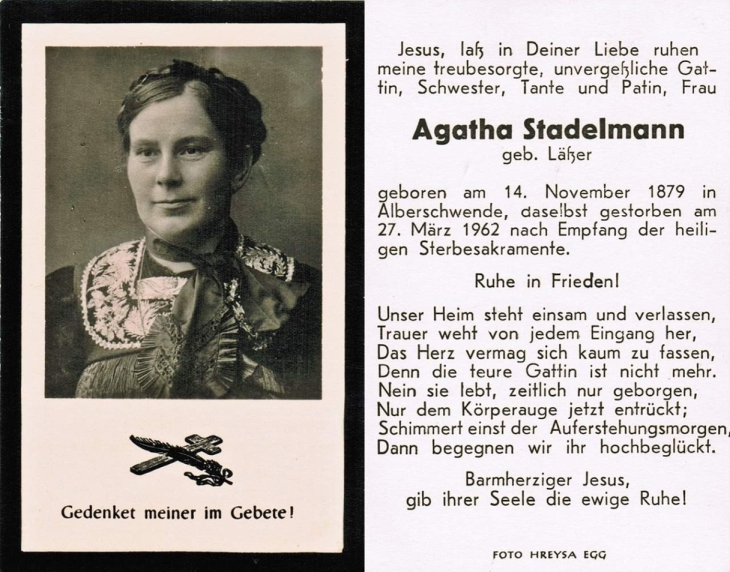 Gedenket meiner im Gebete!
Jesus, laß in Deiner Liebe ruhen
meine treubesorgte, unvergeßliche Gat-
tin, Schwester, Tante und Patin, Frau
Agatha Stadelmann
geb. Läßer
geboren am 14. November 1879 in
Alberschwende, daselbst gestorben am
27. März 1962 nach Empfang der heili-
gen Sterbesakramente.
Ruhe in Frieden!
Unser Heim steht einsam und verlassen,
Trauer weht von jedem Eingang her,
Das Herz vermag sich kaum zu fassen,
Denn die teure Gattin ist nicht mehr.
Nein sie lebt, zeitlich nur geborgen,
Nur dem Körperauge jetzt entrückt;
Schimmert einst der Auferstehungsmorgen,
Dann begegnen wir ihr hochbeglückt.
Barmherziger Jesus,
gib ihrer Seele die ewige Ruhe!
FOTO HREYSA EGG